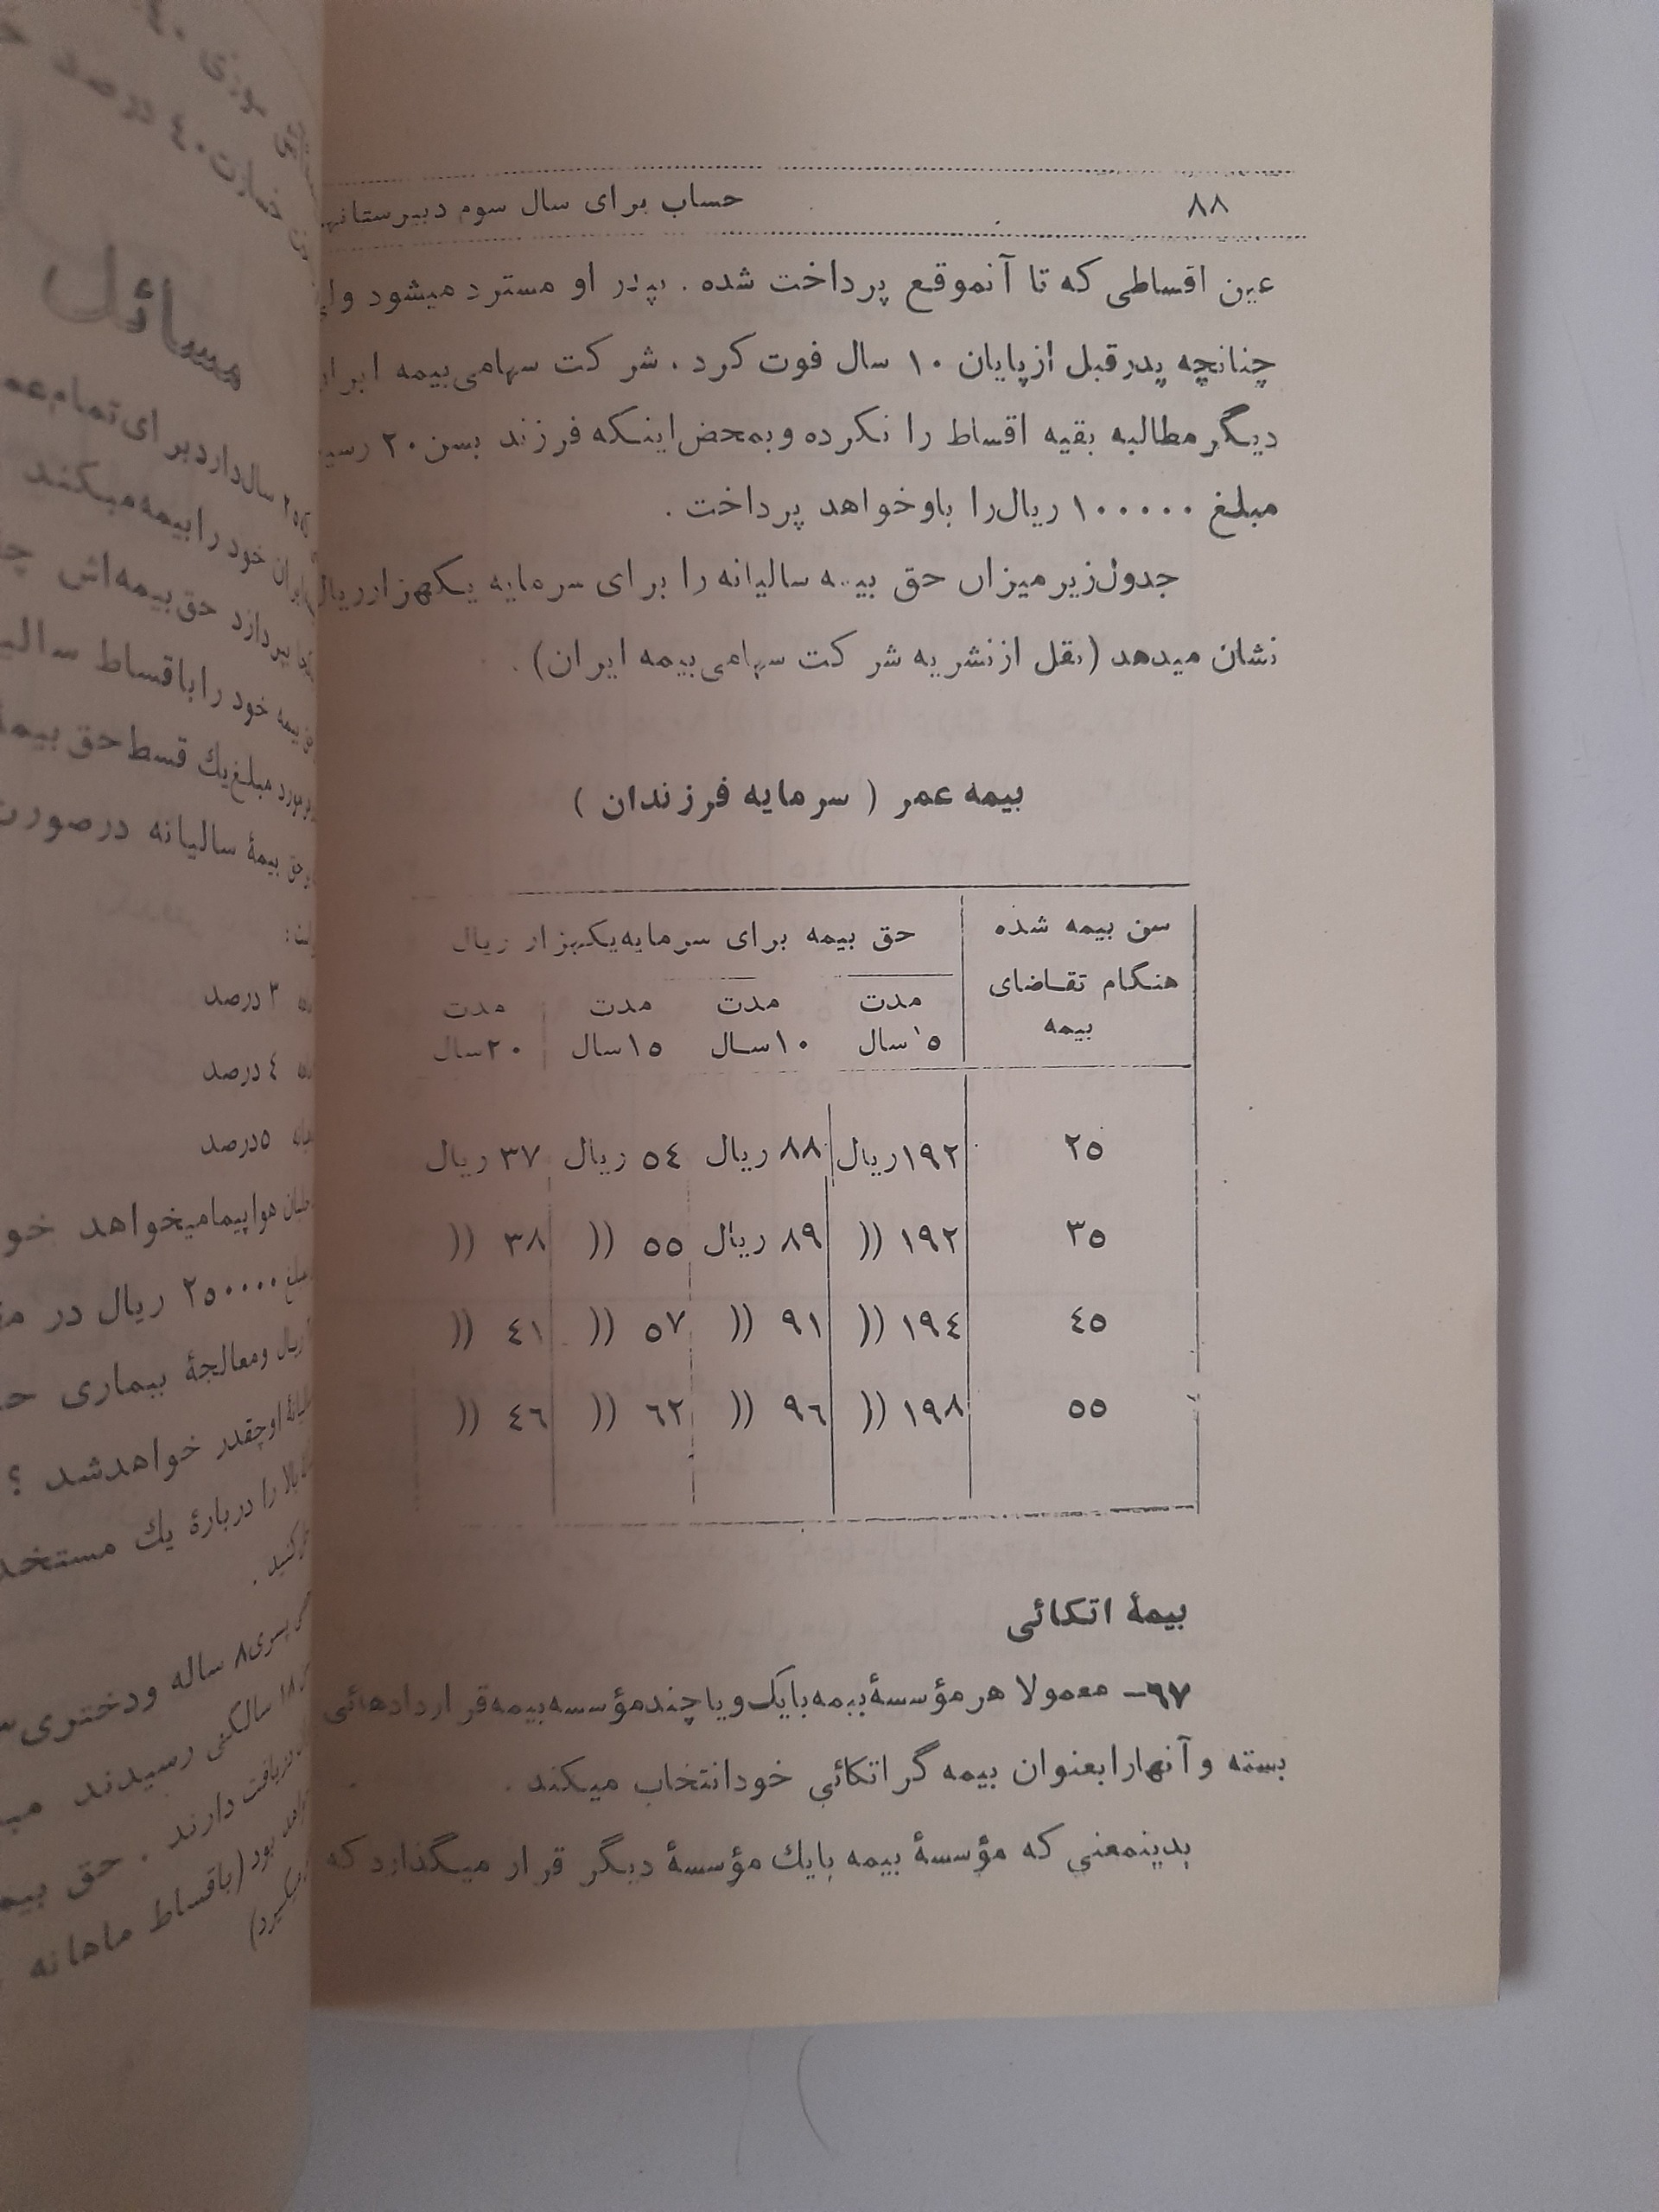 ۸۸ حساب برای سال سوم دبیرستانها
عین اقساطی که تا آنموقع پرداخت شده . بپدر او مسترد میشود ولی
چنانچه پدر قبل از پایان ۱۰ سال فوت کرد ، شرکت سهامی بیمه ایران
دیگر مطالبه بقیه اقساط را نکرده و بمحض اینکه فرزند بسن ۲۰ رسید
مبلغ ۱۰۰۰۰۰ ریال را باو خواهد پرداخت .
جدول زیر میزان حق بیمه سالیانه را برای سرمایه یکهزار ریال
نشان میدهد (نقل از نشریه شرکت سهامی بیمه ایران) .
بیمه عمر ( سرمایه فرزندان )
سن بیمه شده
هنگام تقاضای
بیمه
حق بیمه برای سرمایه یکهزار ریال
مدت مدت مدت مدت
۵ سال ۱۰ سال ۱۵ سال ۲۰ سال
۲۵ ۱۹۲ ریال ۸۸ ریال ۵٤ ریال ۳۷ ریال
۳۵ ۱۹۲ )) ۸۹ ریال ۵۵ )) ۳۸ ))
٤۵ ۱۹٤ )) ۹۱ )) ۵۷ )) ٤۱ ))
۵۵ ۱۹۸ )) ۹٦ )) ٦۲ )) ٤٦ ))
بیمهٔ اتکائی
۹۷- معمولا هر مؤسسهٔ بیمه با یک و یا چند مؤسسه بیمه قراردادهائی
بسته و آنها را بعنوان بیمه گر اتکائی خود انتخاب میکند .
بدینمعنی که مؤسسهٔ بیمه با یک مؤسسهٔ دیگر قرار میگذارد که
مسائل
سال دارد برای تمام
خود را بیمه میکند
بپردازد حق بیمه‌اش
بیمه خود را باقساط
مورد مبلغ یک قسط حق بیمه
حق بیمهٔ سالیانه در صورت
۳ درصد
٤ درصد
۵ درصد
هواپیما میخواهد
۲۵۰۰۰۰ ریال در
ریال و معالجهٔ بیماری
او چقدر خواهد شد ؟
بالا را دربارهٔ یک
کنید .
پسری ۸ ساله و دختری
۱۸ سالگی رسیدند
دریافت دارند . حق
بود (باقساط ماهانه